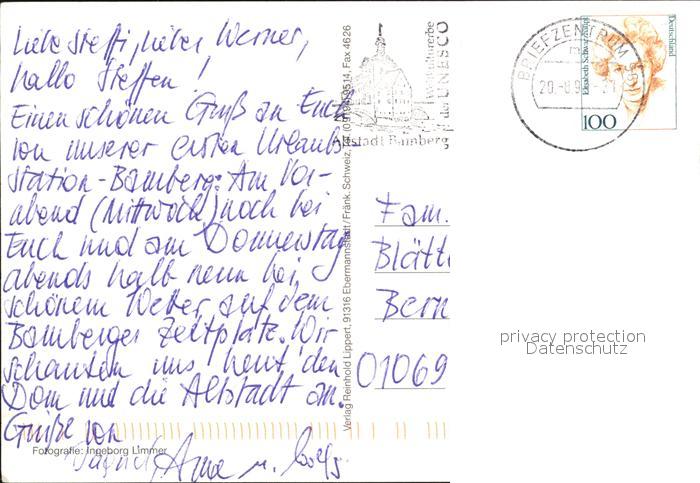 Liebe Steffi, lieber Werner,
hallo Steffen!
Einen schönen Gruß an Euch
von unserer ersten Urlaubs-
station - Bamberg. Am Vor-
abend (Mittwoch) noch bei
Euch und am Donnerstag
abends halb neun bei
schönem Wetter auf dem
Bamberger Zeltplatz. Wir
schauten uns heut' den
Dom und die Altstadt an.
Grüße von
Anne u.
Fotografie: Ingeborg Limmer
Verlag Reinhold Lippert, 91316 Ebermannstadt / Fränk. Schweiz, Tel. (09194) 9514, Fax 4626
Weltkulturerbe
der UNESCO
Altstadt Bamberg
BRIEFZENTRUM 96
Elisabeth Schwarzhaupt
Deutschland
100
Fam.
Blätt
Bern
01069
privacy protection
Datenschutz